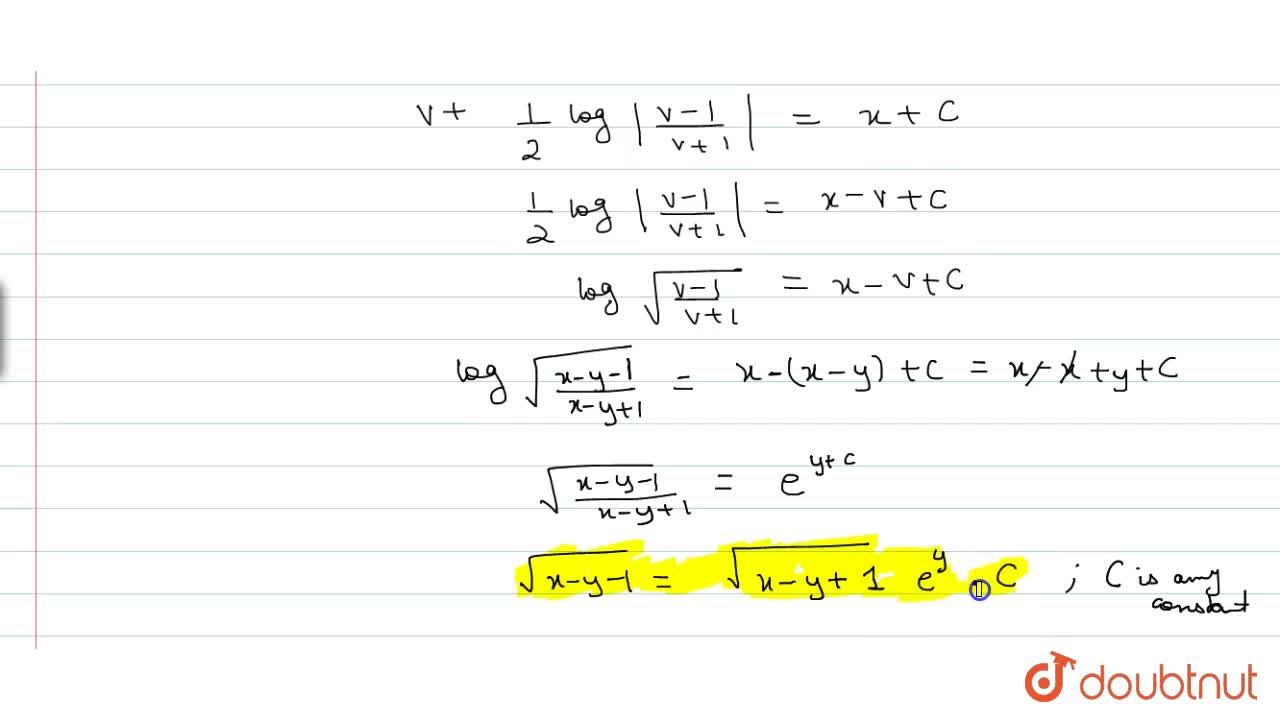 v + 1/2 log |v-1/v+1| = x + C
1/2 log |v-1/v+1| = x - v + C
log √(v-1/v+1) = x - v + C
log √(x-y-1/x-y+1) = x - (x-y) + C = x - x + y + C
√(x-y-1/x-y+1) = e^(y+c)
√(x-y-1) = √(x-y+1) e^y . C ; C is any
constant
doubtnut